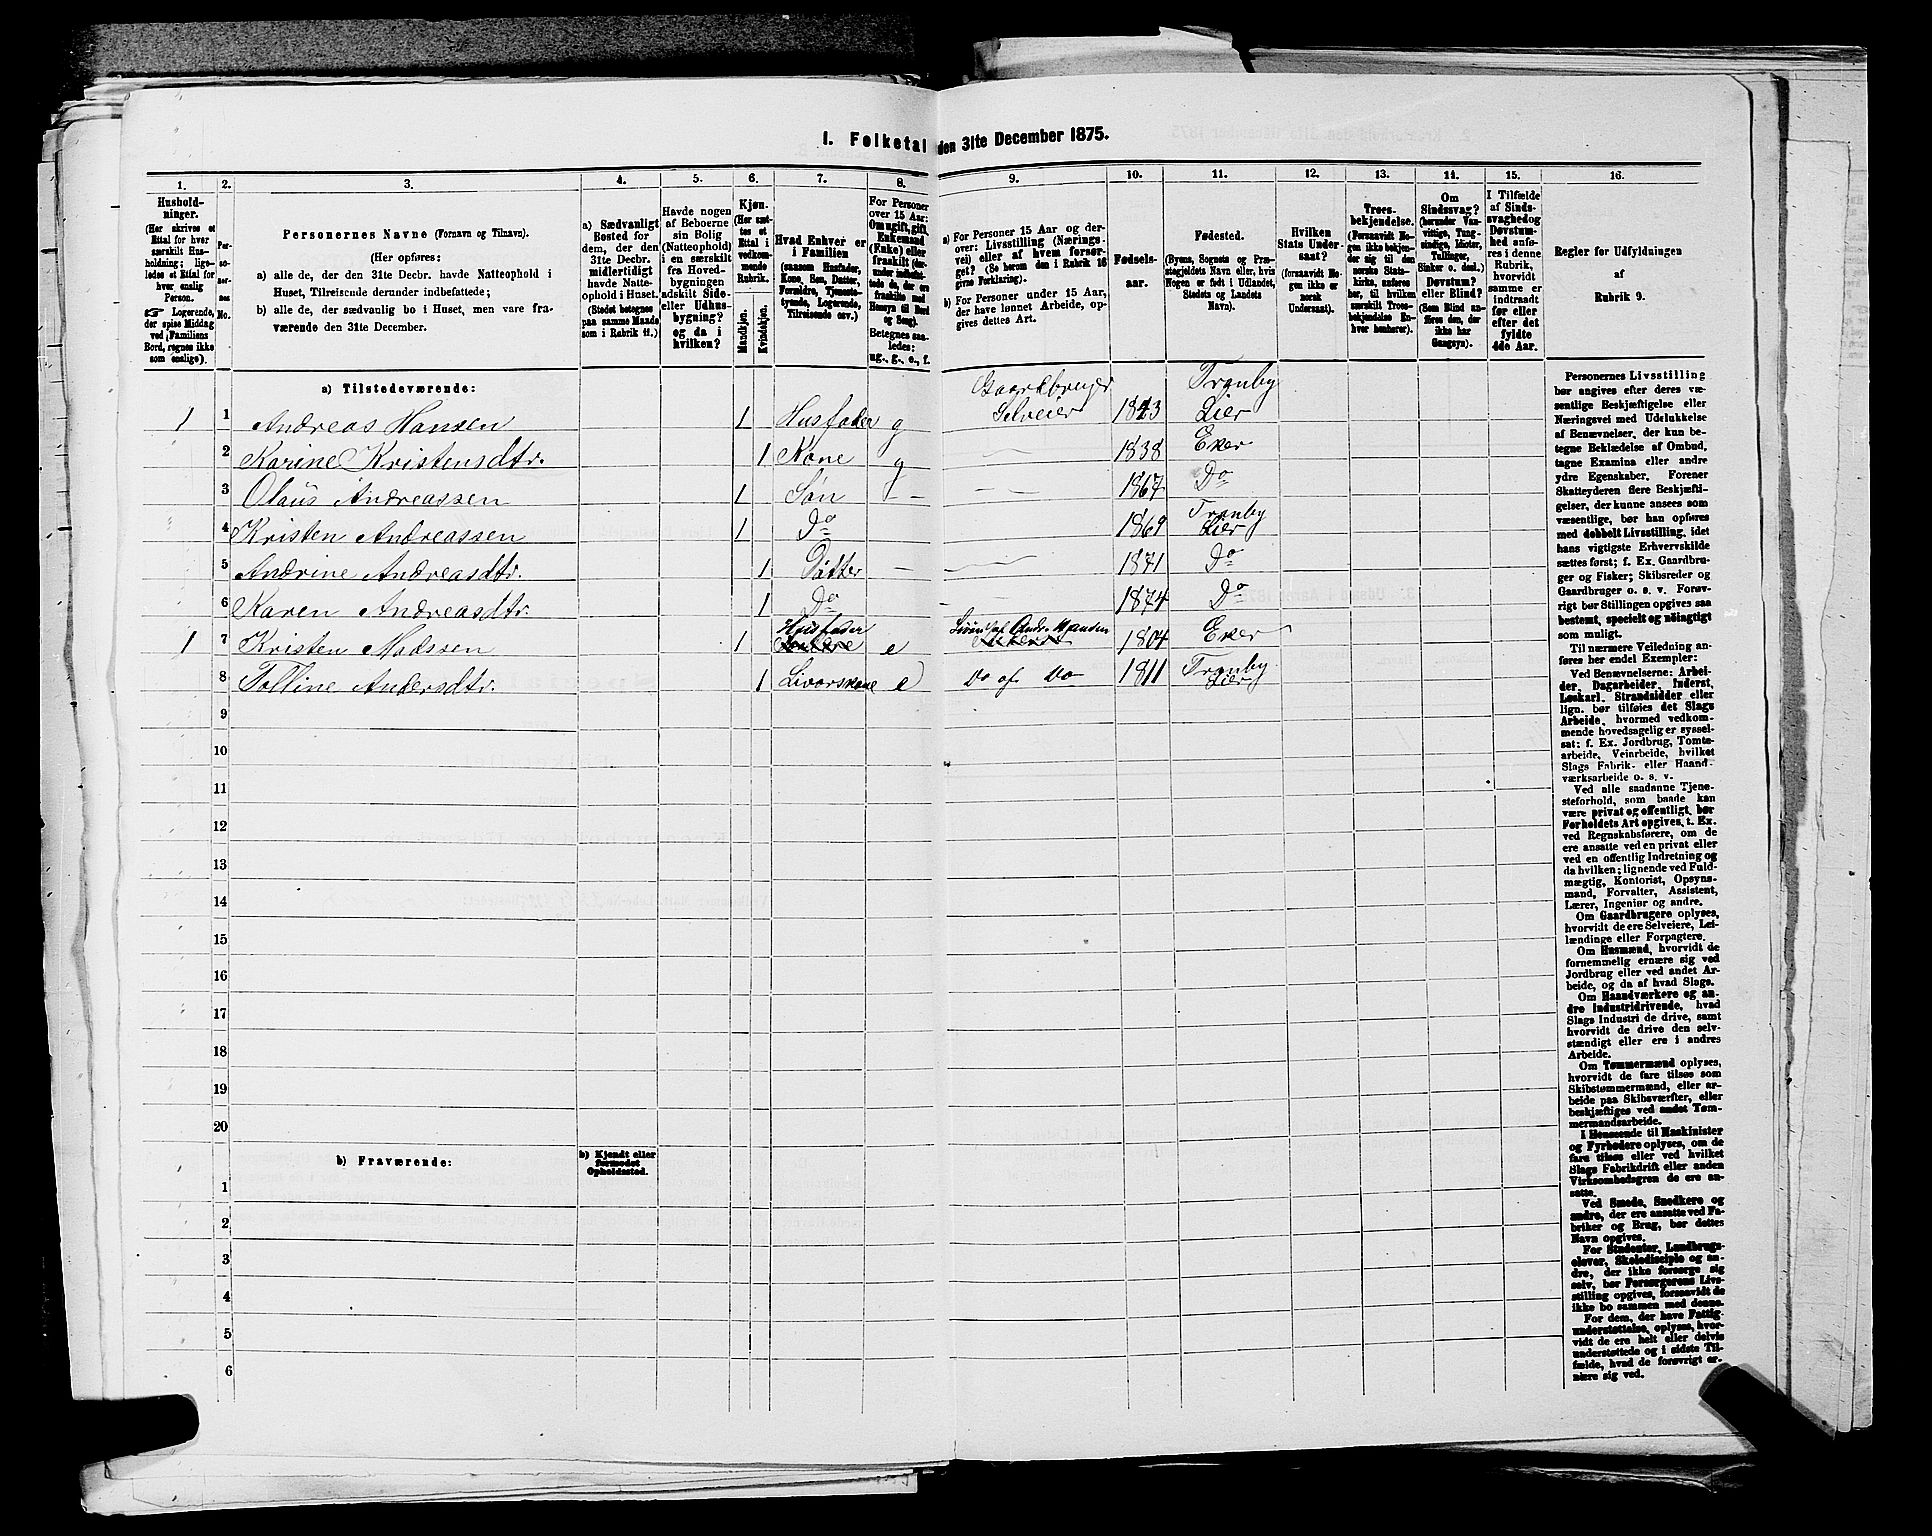 I. Folketal den 31te December 1875.
1. 2. 3. 4. 5. 6. 7. 8. 9. 10. 11. 12. 13. 14. 15. 16.
Hushold-
ninger.
(Her skrives et
Ettal for hver
særskilt Hus-
holdning; lige-
ledes et Ettal for
hver enslig
Person.
☞ Logerende,
der spise Middag
ved Familiens
Bord, regnes ikke
som enslige).
Per-
so-
ner-
nes
No.
Personernes Navne (Fornavn og Tilnavn).
(Her opføres:
a) alle de, der den 31te Decbr. havde Natteophold i
Huset, Tilreisende derunder indbefattede;
b) alle de, der sædvanlig bo i Huset, men vare fra-
værende den 31te December.
a) Sædvanligt
Bosted for
dem, der den
31te Decbr.
midlertidigt
havde Natte-
ophold i Huset.
(Stedet betegnes
paa samme Maade
som i Rubrik 11.)
Havde nogen
af Beboerne
sin Bolig
(Natteophold)
i en særskilt
fra Hoved-
bygningen
adskilt Side-
eller Udhus-
bygning?
og da i
hvilken?
Kjøn.
(Her sæt-
tes et
Ettal i
vedkom-
mende
Rubrik.
Mandkjøn.
Kvindekjøn.
Hvad Enhver er
i Familien
(saasom Husfader,
Kone, Søn, Datter,
Forældre, Tjeneste-
tyende, Logerende,
Tilreisende osv.)
For Personer
over 15 Aar:
Om ugift, gift,
Enkemand
(Enke) eller
fraskilt (der-
under indbefat-
tede de, der ere
fraskilte med
Hensyn til Bord
og Seng).
Betegnes saa-
ledes:
ug., g., e., f.
a) For Personer 15 Aar og der-
over: Livsstilling (Nærings-
vei) eller af hvem forsør-
get? (Se herom den i Rubrik 16
givne Forklaring).
b) For Personer under 15 Aar,
der have lønnet Arbeide, op-
gives dettes Art.
Fødsels-
aar.
Fødested.
(Byens, Sognets og Præ-
stegjeldets Navn eller, hvis
Nogen er født i Udlandet,
Stedets og Landets
Navn).
Hvilken
Stats Under-
saat?
(forsaavidt No-
gen ikke er
norsk
Undersaat).
Troes-
bekjendelse.
(Forsaavidt No-
gen ikke bekjen-
der sig til den
norske Stats-
kirke, anføres
her, til hvilken
særskilt Troes-
bekjendelse En-
hver henhører).
Om
Sindssvag?
(herunder Van-
vittige, Tung-
sindige, Idioter,
Tullinger,
Sinker o. desl.)
Døvstum?
eller Blind?
(Som Blind an-
føres den, der
ikke har
Gangsyn).
I Tilfælde
af Sinds-
svaghed og
Døvstum-
hed anfø-
res i denne
Rubrik,
hvorvidt
samme er
indtraadt
før eller
efter det
fyldte
4de Aar.
Regler for Udfyldningen
af
Rubrik 9.
a) Tilstedeværende:
1 1 Andreas Hansen 1 Husfader g Gaardbruger Selveier 1843 Tranby Lier
2 Karine Kristensdtr. 1 Kone g — 1838 Eker
3 Olaüs Andreassen 1 Søn — — 1867 Do
4 Kristen Andreassen 1 Do 1869 Tranby Lier
5 Andrine Andreasdtr. 1 Datter — — 1871 Do
6 Karen Andreasdtr. 1 Do — 1874 Do
1 7 Kristen Madssen 1 Husfader e 1804 Eker
8 Tolline Andersdtr. 1 e Do af Do 1811 Tranby Lier
9
10
11
12
13
14
15
16
17
18
19
20
b) Fraværende: b) Kjendt eller
formodet
Opholdssted.
1
2
3
4
5
6
Personernes Livsstilling
bør angives efter deres væ-
sentlige Beskjæftigelse eller
Næringsvei med Udelukkelse
af Benævnelser, der kun be-
tegne Beklædelse af Ombud,
tagne Examina eller andre
ydre Egenskaber. Forener
Skatteyderen flere Beskjæfti-
gelser, der kunne ansees som
væsentlige, bør han opføres
med dobbelt Livsstilling, idet
hans vigtigste Erhvervskilde
sættes først; f. Ex. Gaardbru-
ger og Fisker; Skibsreder og
Gaardbruger o. s. v. Forøv-
rigt bør Stillingen opgives saa
bestemt, specielt og nøiagtigt
som muligt.
Til nærmere Veiledning an-
føres her endel Exempler:
Ved Benævnelserne: Arbei-
der, Dagarbeider, Inderst,
Løskarl, Strandsidder eller
lign. bør tilføies det Slags
Arbeide, hvormed vedkom-
mende hovedsagelig er syssel-
sat; f. Ex. Jordbrug, Tomte-
arbeide, Veiarbeide, hvilket
Slags Fabrik- eller Haand-
værksarbeide o. s. v.
Ved alle saadanne Tjene-
steforhold, som baade kan
være privat og offentligt, bør
Forholdets Art opgives, t. Ex.
ved Regnskabsførere, om de
ere ansatte ved en privat eller
ved en offentlig Indretning og
da hvilken; lignende ved Fuld-
mægtig, Kontorist, Opsyns-
mand, Forvalter, Assistent,
Lærer, Ingeniør og andre.
Om Gaardbrugere oplyses,
hvorvidt de ere Selveiere, Lei-
lændinge eller Forpagtere.
Om Husmænd, hvorvidt de
fornemmelig ernære sig ved
Jordbrug eller ved andet Ar-
beide, og da af hvad Slags.
Om Haandværkere og an-
dre Industridrivende, hvad
Slags Industri de drive, samt
hvorvidt de drive den selv-
stændigt eller ere i andres
Arbeide.
Om Tømmermænd oplyses,
hvorvidt de fare tilsøs som
Skibstømmermænd, eller ar-
beide paa Skibsværfter, eller
beskjæftiges ved andet Tøm-
mermandsarbeide.
I Henseende til Maskinister
og Fyrbødere oplyses, om de
fare tilsøs eller ved hvilket
Slags Fabrikdrift eller anden
Virksomhedsgren de ere an-
satte.
Ved Smede, Snedkere og
andre, der ere ansatte ved Fa-
briker og Brug, bør dettes
Navn opgives.
For Studenter, Landbrugs-
elever, Skoledisciple og an-
dre, der ikke forsørge sig
selv, bør Forsørgerens Livs-
stilling opgives, forsaavidt de
ikke bo sammen med denne.
For dem, der have Fattig-
understøttelse, oplyses, hvor-
vidt de ere helt eller delvis
understøttede og i sidste Til-
fælde, hvad de forøvrigt er-
nære sig ved.